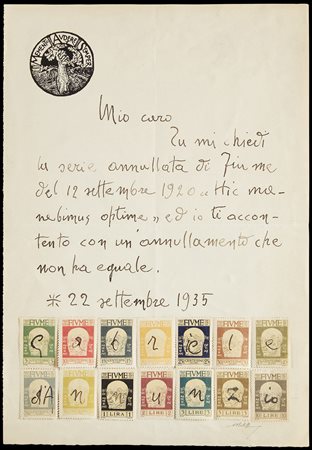 MEMENTO AUDERE SEMPER
Mio caro
Tu mi chiedi
la serie annullata di Fiume
del 12 settembre 1920 « Hic ma-
nebimus optime » ed io ti accon-
tento con un'annullamento che
non ha eguale.
* 22 settembre 1935
FIUME FIUME FIUME FIUME FIUME FIUME FIUME
G a b r i e l e
FIUME FIUME FIUME FIUME FIUME FIUME FIUME
d'A n n u n z io
1 LIRA 2 LIRE 3 LIRE 5 LIRE 10 LIRE